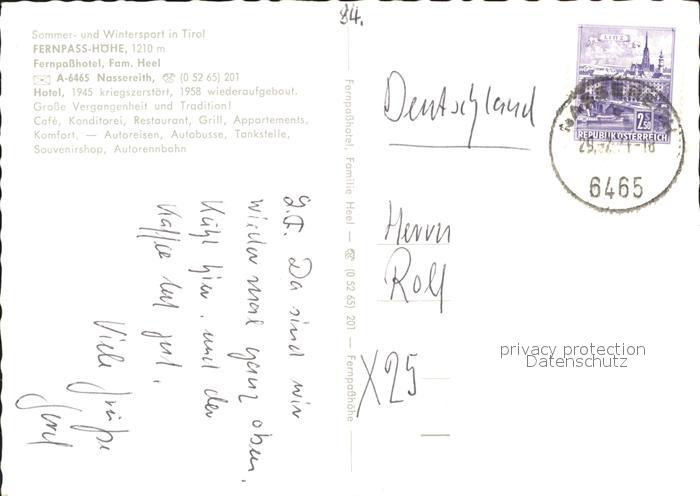 84.
Sommer- und Wintersport in Tirol
FERNPASS-HÖHE, 1210 m
Fernpaßhotel, Fam. Heel
A-6465 Nassereith, (0 52 65) 201
Hotel, 1945 kriegszerstört, 1958 wiederaufgebaut.
Große Vergangenheit und Tradition!
Café, Konditorei, Restaurant, Grill, Appartements,
Komfort. — Autoreisen, Autobusse, Tankstelle,
Souvenirshop, Autorennbahn
Da sind wir
wieder mal ganz oben.
Kühl hier, und der
Kaffee tut gut.
Viele Grüße
Fernpaßhotel, Familie Heel — (0 52 65) 201 — Fernpaßhöhe
Deutschland
Herrn
Rolf
X25
LINZ
2.50
REPUBLIK ÖSTERREICH
6465
privacy protection
Datenschutz